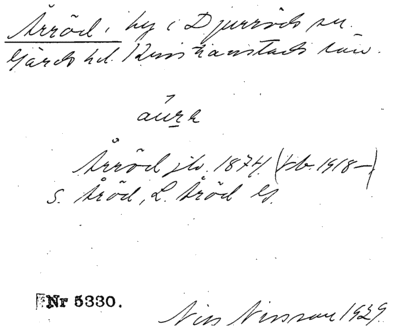 Årröd, by i Djurröds sn.
Gärds hd. Kristianstads län.
áura
Årröd jlv. 1874 (tb. 1918–)
S. Åröd, L. Åröd Gs.
Nr 5330.
Nils Nilsson 1929